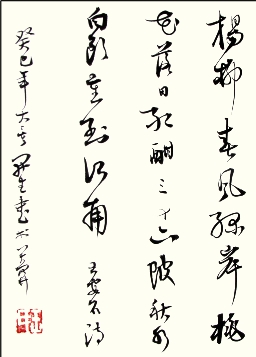 楊柳春風綠岸桃
花落日紅酣三十六陂秋水
白頭重到江南 王安石詩
癸巳年大 書於